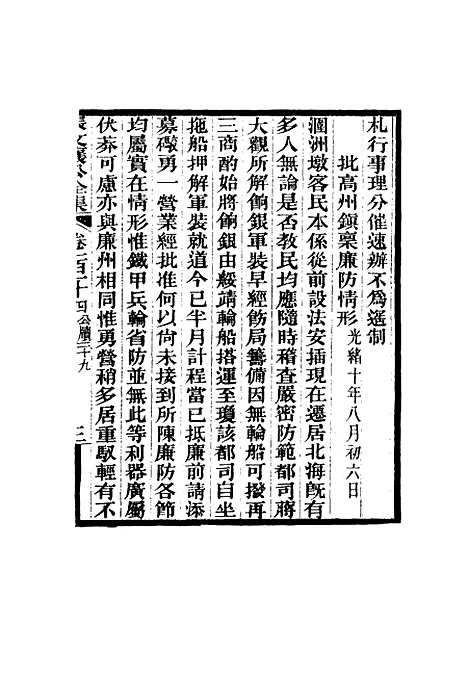 札行事理分催速辦不爲遙制
批高州鎭稟廉防情形光緒十年八月初六日
潿洲墩客民本係從前設法安插現在遷居北海旣有
多人無論是否敎民均應隨時稽查嚴密防範都司蔣
大觀所解餉銀軍裝早經飭局籌備因無輪船可撥再
三商酌始將餉銀由綏靖輪船搭運至瓊該都司自坐
拖船押解軍裝就道今已半月計程當已抵廉前請添
募礮勇一營業經批准何以尙未接到所陳廉防各節
均屬實在情形惟鐵甲兵輪省防並無此等利器廣屬
伏莽可慮亦與廉州相同惟勇營稍多居重馭輕有不
張文襄公全集 卷一百二十四 公牘三十九 三